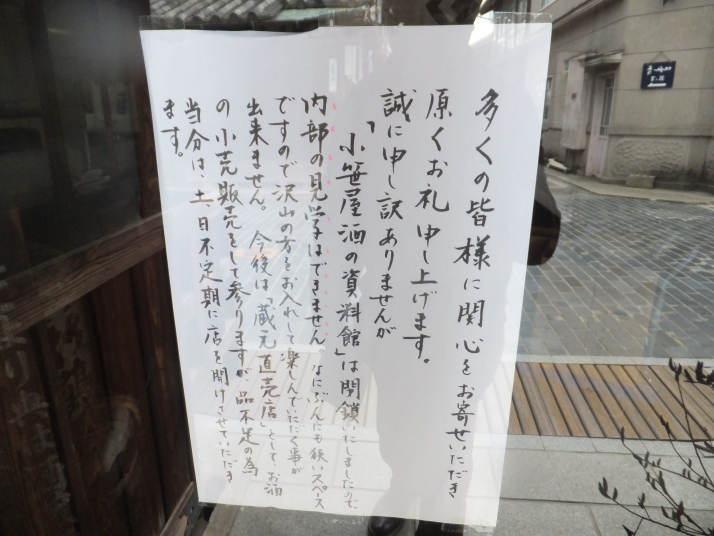 多くの皆様に関心をお寄せいただき
原くお礼申し上げます。
誠に申し訳ありませんが
「小笹屋酒の資料館」は閉鎖いたしましたので、
内部の見学はできません。なにぶんにも狭いスペース
ですので沢山の方をお入れして楽しんでいただく事が
出来ません。今後は「蔵元直売店」として、お酒
の小売販売をして参りますが、品不足の為
当分は、土日不定期に店を開けさせていただき
ます。